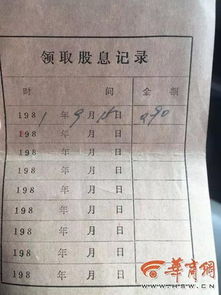 领取股息记录
时 间 金 额
1981年9月14日 990
198 年 月 日
198 年 月 日
198 年 月 日
198 年 月 日
198 年 月 日
198 年 月 日
198 年 月 日
华商网
WWW.HSW.CN